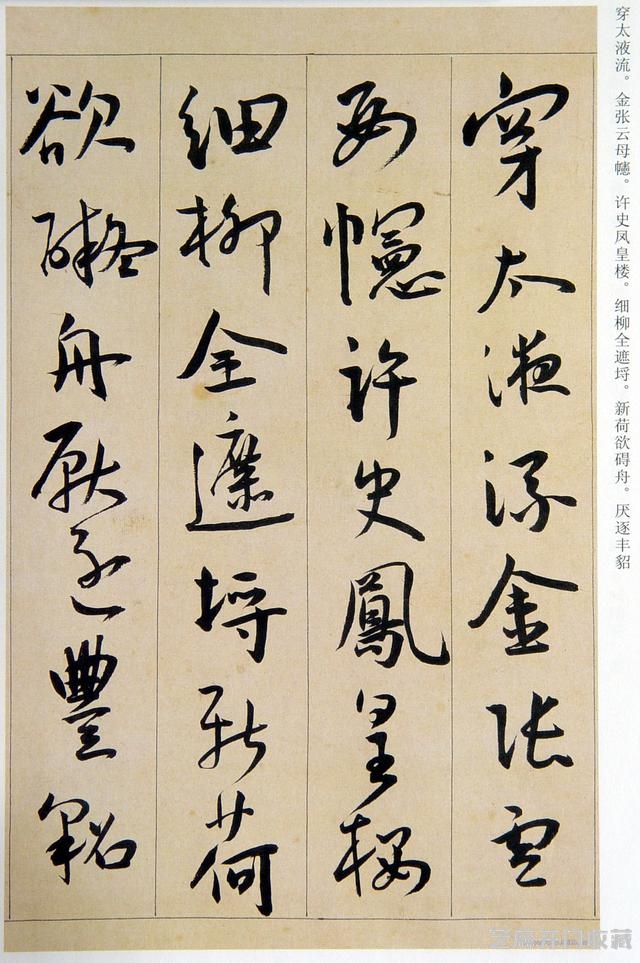 穿太液流。金张云母幰。许史凤皇楼。细柳全遮埒。新荷欲碍舟。厌逐丰貂
穿太液流金张雲
母幰許史鳳皇楼
细柳全遮埒新荷
欲礙舟厭逐豐貂